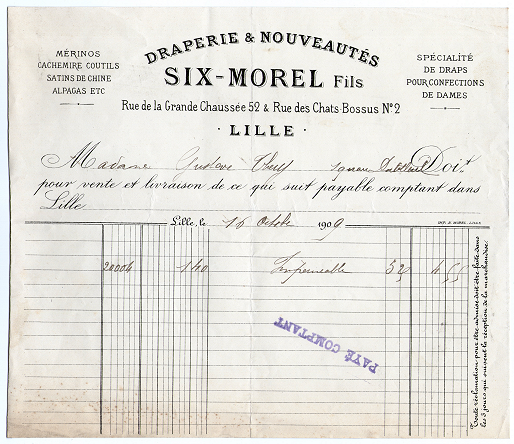 DRAPERIE & NOUVEAUTÉS
MÉRINOS
CACHEMIRE COUTILS
SATINS DE CHINE
ALPAGAS ETC
SIX-MOREL Fils
SPÉCIALITÉ
DE DRAPS
POUR CONFECTIONS
DE DAMES
Rue de la Grande Chaussée 52 & Rue des Chats-Bossus Nº2
· LILLE ·
Madame Gustave Doit
pour vente et livraison de ce qui suit payable comptant dans
Lille
IMP. E. MOREL. LILLE
Lille, le 16 Octobre 1909
20004 140 Imperméable 32 4 55
PAYÉ COMPTANT
Toute réclamation pour être admise doit être faite dans
les 3 jours qui suivent la réception de la marchandise.